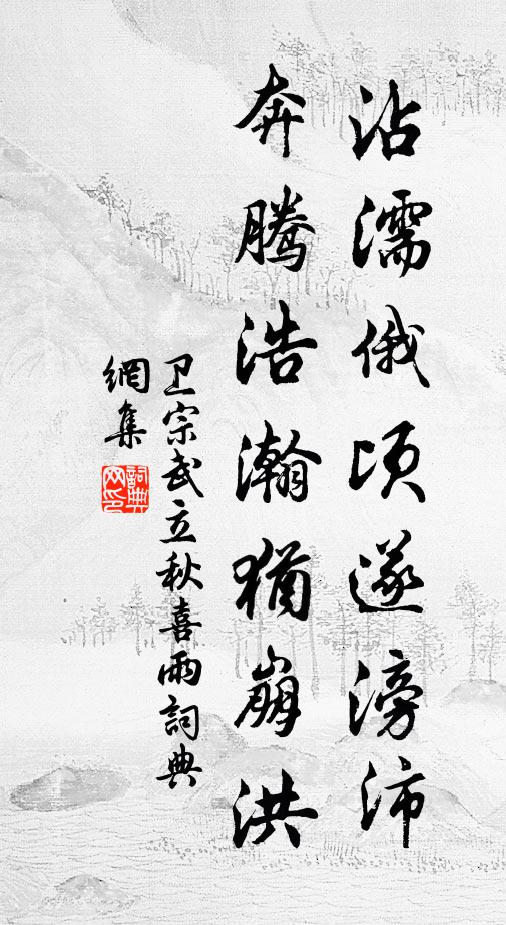 沾濡俄顷遂滂沛
奔腾浩瀚犹崩洪
卫宗武立秋喜雨詞典
網集
詞典
网印